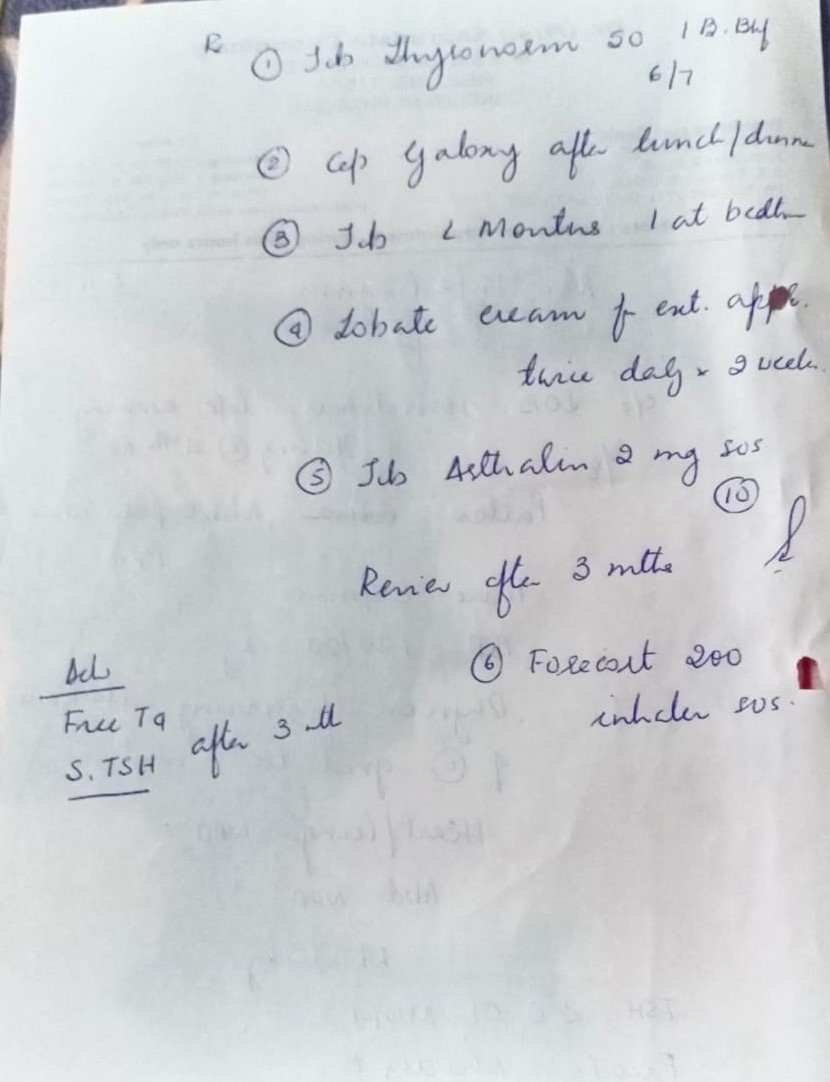 R ① Tab Thyronorm 50 1 B.Bkf
6/7
② Cap Galoxy after lunch/dinne
③ Tab L Montus 1 at bedt
④ Lobate cream f ext. app.
twice daily x 2 week.
⑤ Tab Asthalin 2 mg sos
⑩
Review after 3 mths
⑥ Foracort 200
inhaler sos.
Adv
Free T4
S. TSH after 3 mth